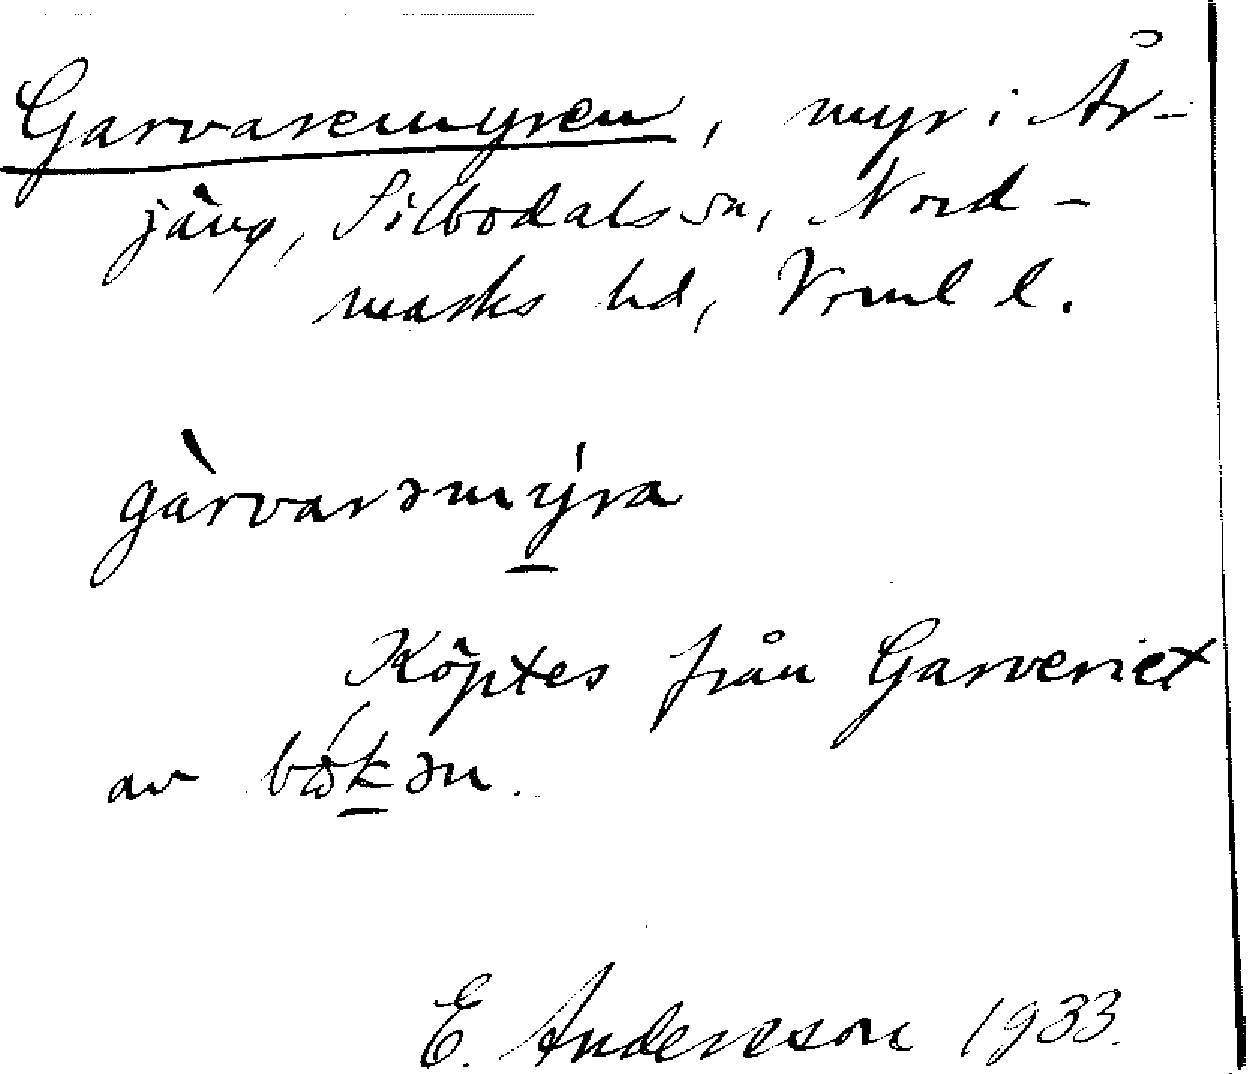 Garvaremyren, myr i År-
jäng, Silbodals sn, Nord-
marks hd, Vrml l.
gàrvarəmýra
Köptes från Garveriet
av bǿkən.
E. Andersson 1933.